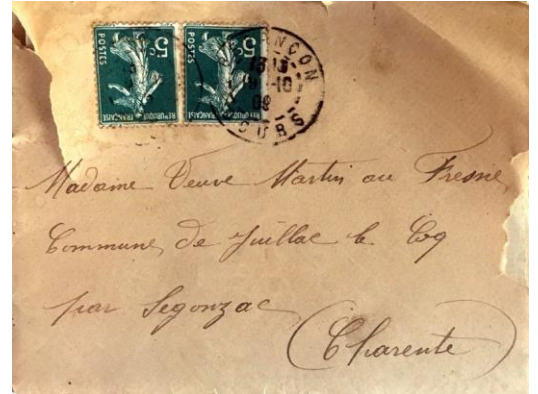 5c 5c
POSTES POSTES
REPUBLIQUE FRANÇAISE REPUBLIQUE FRANÇAISE
13 15
-10
09
Madame Veuve Martin au Fresne
Commune de Juillac le Coq
par Segonzac
(Charente)